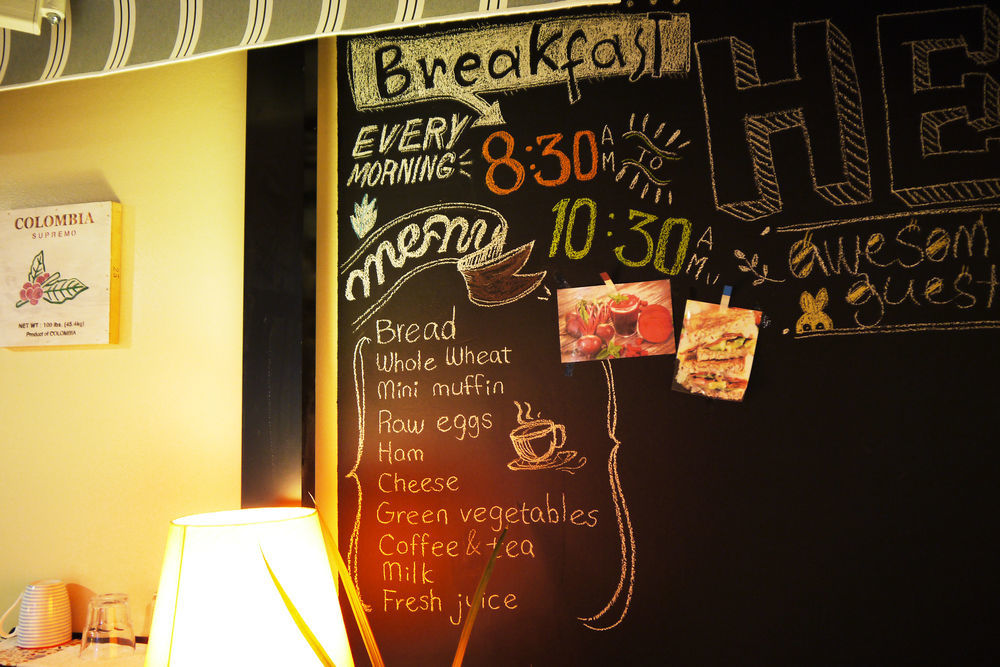 Breakfast
EVERY MORNING 8:30 AM TO
10:30 AM
menu
Bread
Whole Wheat
Mini muffin
Raw eggs
Ham
Cheese
Green vegetables
Coffee & tea
Milk
Fresh juice
HE
awesom
guest
COLOMBIA
SUPREMO
NET WT. 100 lbs. (45.4kg)
Product of COLOMBIA
25